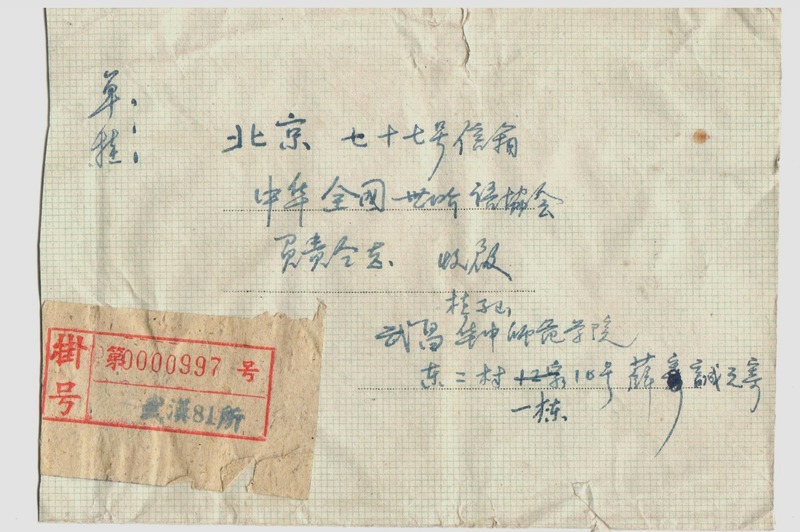 单挂:
北京 七十七号信箱
中华全国世界语协会
负责同志 收启
桂子山
武昌华中师范学院
东二村 10号 蘇 誠元寄
一栋
掛号
第0000997号
武漢81所